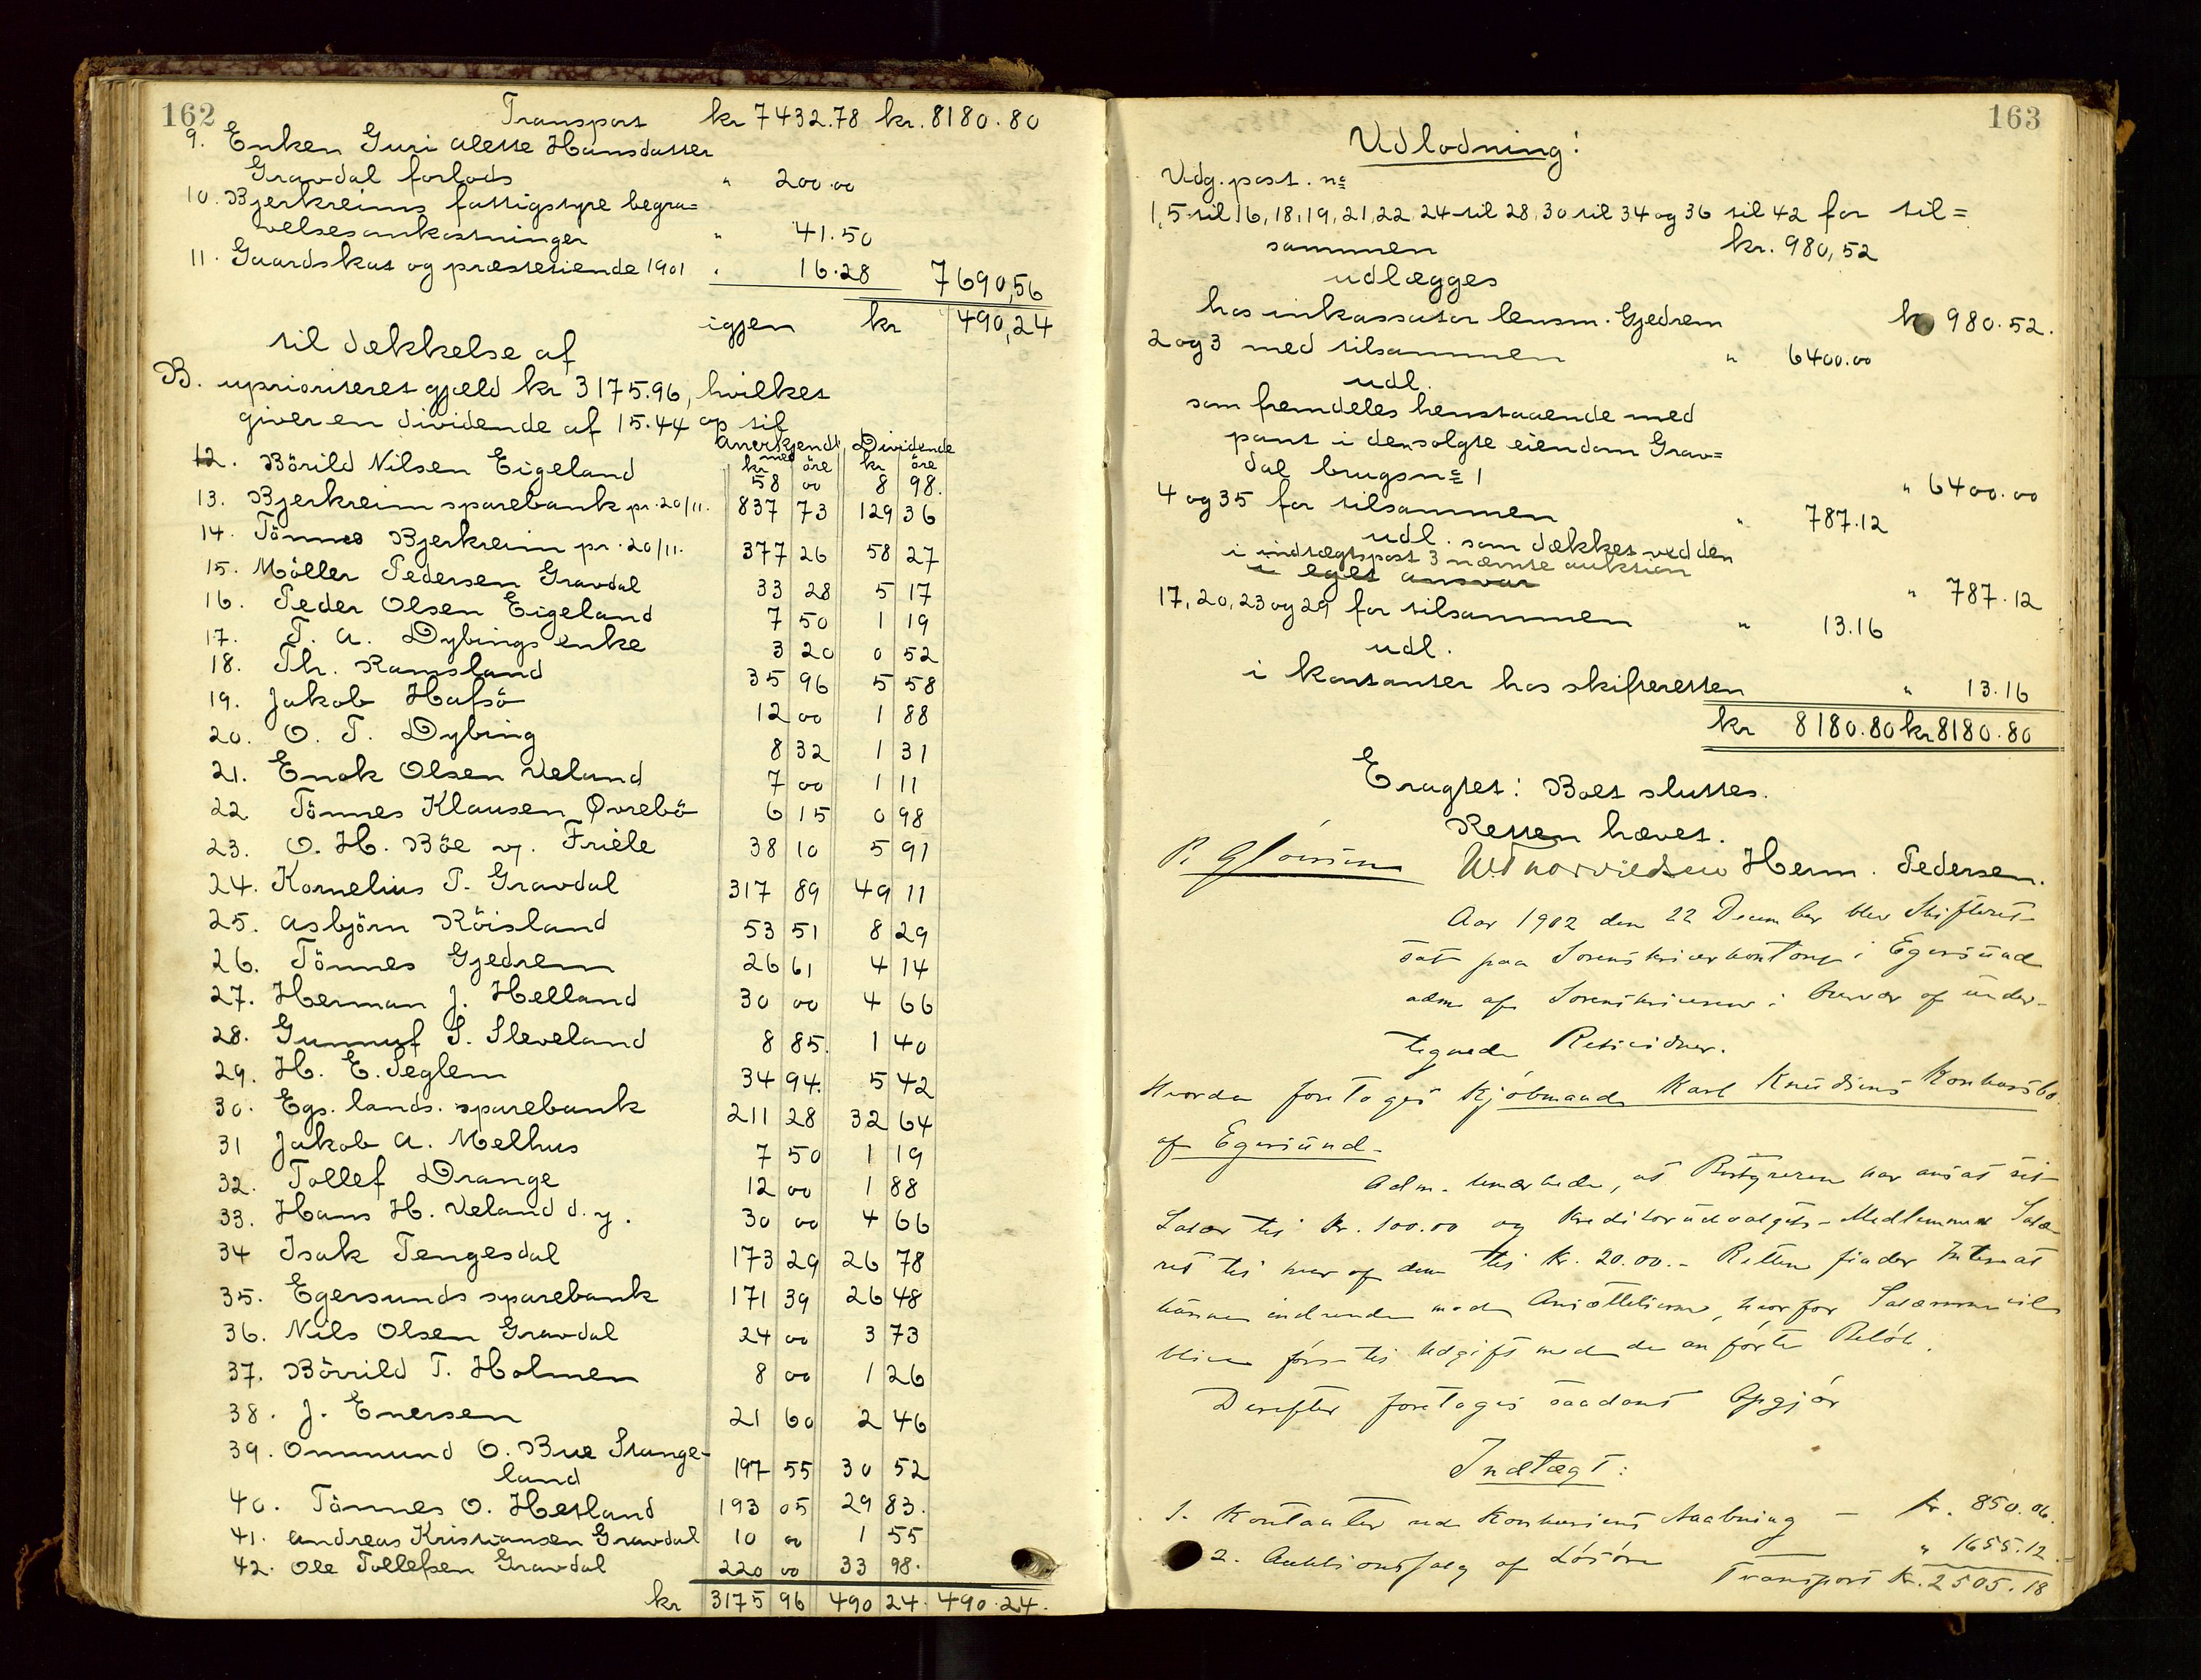 162
Transport kr 7432.78 kr. 8180.80
9. Enken Guri Alette Hansdatter
Gravdal forlods " 200.00
10. Bjerkreims fattigstyre begra=
velsesomkostninger " 41.50
11. Gaardskat og præstetiende 1901 " 16.28 7690,56
igjen kr 490,24
til dækkelse af
B. uprioriteret gjæld kr 3175.96, hvilket
giver en dividende af 15.44 op til
Anerkjendt med Dividende
kr øre kr øre
12. Börild Nilsen Eigeland 58 00 8 98.
13. Bjerkreim sparebank pr. 20/11. 837 73 129 36
14. Tönnes Bjerkreim pr. 20/11. 377 26 58 27
15. Möller Pedersen Gravdal 33 28 5 17
16. Peder Olsen Eigeland 7 50 1 19
17. T. A. Dybings enke 3 20 0 52
18. Th. Ramsland 35 96 5 58
19. Jakob Hafsö 12 00 1 88
20. O. T. Dybing 8 32 1 31
21. Enok Olsen Veland 7 00 1 11
22. Tönnes Klausen Øvrebö 6 15 0 98
23. O. H. Böe v/. Friele 38 10 5 91
24. Kornelius T. Gravdal 317 89 49 11
25. Asbjörn Röisland 53 51 8 29
26. Tönnes Gjedrem 26 61 4 14
27. Herman J. Helland 30 00 4 66
28. Gunnuf S. Sleveland 8 85. 1 40
29. H. E. Seglem 34 94. 5 42
30. Egs. lands. sparebank 211 28 32 64
31 Jakob A. Melhus 7 50 1 19
32. Tollef Drange 12 00 1 88
33. Hans H. Veland d. y. 30 00 4 66
34 Isak Tengesdal 173 29 26 78
35. Egersunds sparebank 171 39 26 48
36. Nils Olsen Gravdal 24 00 3 73
37. Börrild T. Holmen 8 00 1 26
38. J. Enersen 21 60 2 46
39. Ommund O. Bue Stange-
land 197 55 30 52
40. Tönnes O. Hetland 193 05 29 83.
41. Andreas Kristiansen Gravdal 10 00 1 55
42. Ole Tollefsen Gravdal 220 00 33 98.
kr 3175 96 490 24. 490.24.
163
Udlodning:
Udg. post. no
1, 5 til 16, 18, 19, 21, 22, 24 til 28, 30 til 34 og 36 til 42 for til=
sammen kr. 980,52
udlægges
hos inkassator lensm. Gjedrem kr 980.52.
2 og 3 med tilsammen " 6400.00
udl.
som fremdeles henstaaende med
pant i den solgte eiendom Grav=
dal brugsno 1 " 6400.00
4 og 35 for tilsammen " 787.12
udl. som dækket ved den
i indtægtspost 3 nævnte auktion
i eget ansvar " 787.12
17, 20, 23 og 29 for tilsammen " 13.16
udl.
i kontanter hos skifteretten " 13.16
kr 8180.80 kr 8180.80
Eragtet: Boet sluttes.
Retten hævet.
Herm. Pedersen.
Aar 1902 den 22 December blev Skifteret
sat paa Sorenskriverkontoret i Egersund
adm af Sorenskriveren i Overvær af under-
tegnede Retsvidner.
Hvorda foretoges Kjøbmand Karl Knudsens Konkursbo
af Egersund.
Adm. bemærkede, at Bestyreren har ansat sit
Salær til Kr. 100.00 og Kreditorudvalgets Medlemmer Salæ
ret til hver af dem til Kr. 20.00. - Retten finder Intet at
kunne indvende mod Ansættelserne, hvorfor Salærerne vil
blive først til Udgift med de anførte Beløb.
Derefter foretoges saadant Opgjør
Indtægt:
1. Kontanter ved Konkursens Aabning - kr. 850.06.
2. Auktionssalg af Løsøre " 1655.12.
Transport Kr. 2505.18